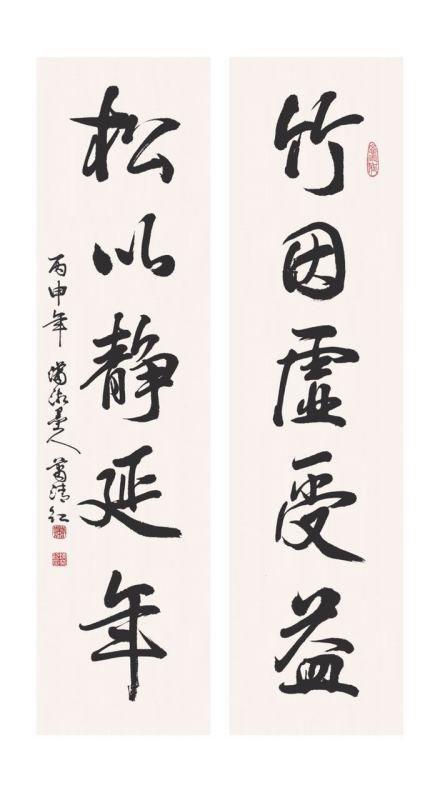 竹因虚受益
松以静延年
丙申年 潇湘墨人 萧清红